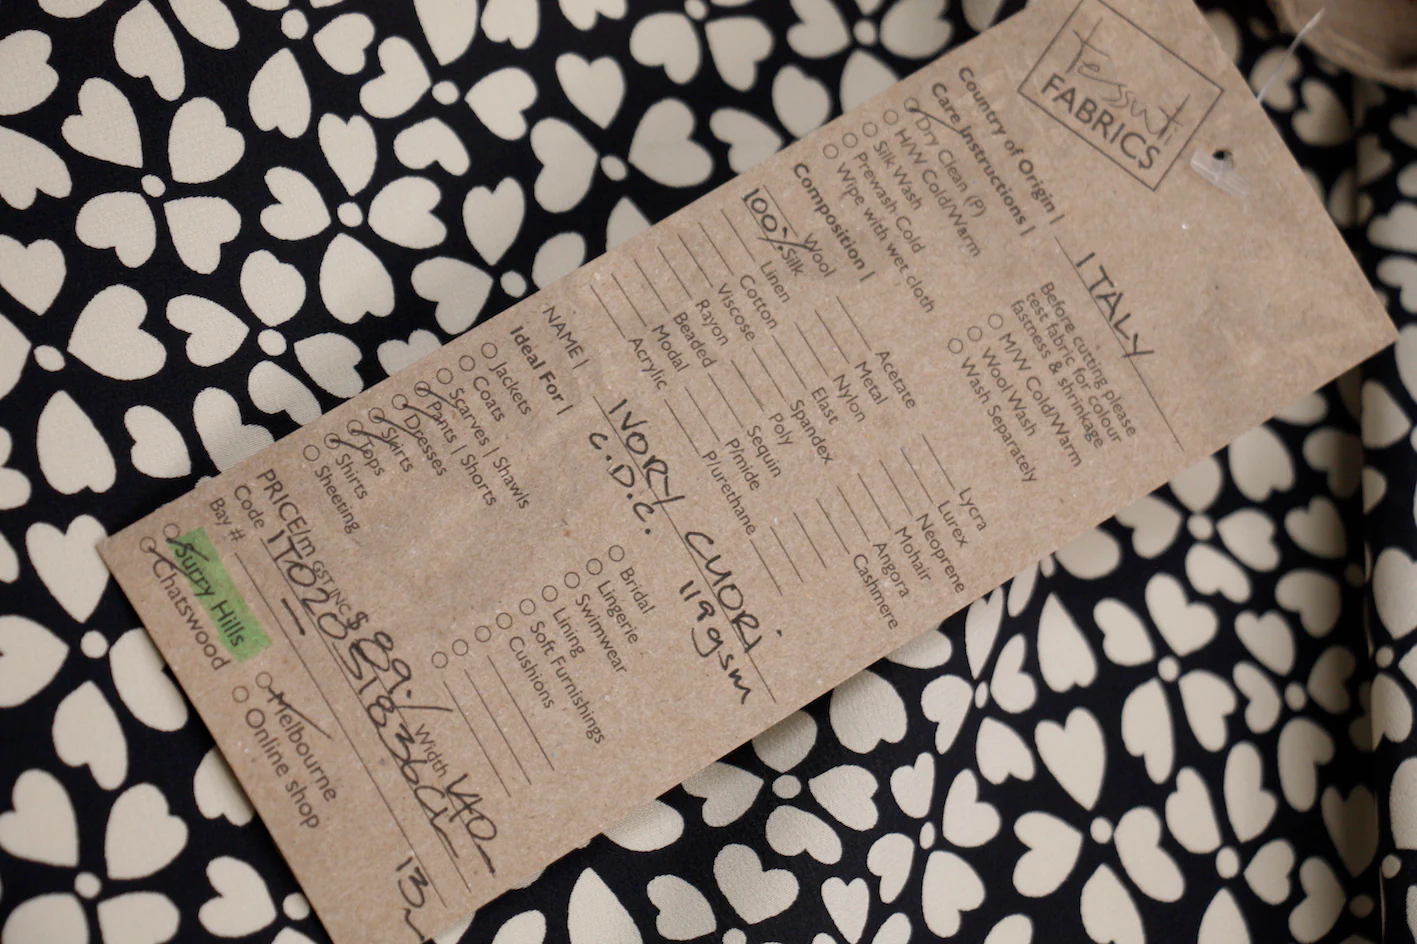 tessuti
FABRICS
Country of Origin | ITALY
Care Instructions |
Dry Clean (P)
H/W Cold/Warm
Silk Wash
Prewash Cold
Wipe with wet cloth
Before cutting please
test fabric for colour
fastness & shrinkage
M/W Cold/Warm
Wool Wash
Wash Separately
Composition |
Wool
100% Silk
Linen
Cotton
Viscose
Rayon
Beaded
Modal
Acrylic
Acetate
Metal
Nylon
Elast
Spandex
Poly
Sequin
P/mide
P/urethane
Lycra
Lurex
Neoprene
Mohair
Angora
Cashmere
NAME | IVORY CUORI
C.D.C. 119gsm
Ideal For |
Jackets
Coats
Scarves | Shawls
Pants | Shorts
Dresses
Skirts
Tops
Shirts
Sheeting
Bridal
Lingerie
Swimwear
Lining
Soft Furnishings
Cushions
PRICE/m GST INC $ 89./ Width 140
Code
Bay #
13
Surry Hills
Chatswood
Melbourne
Online shop